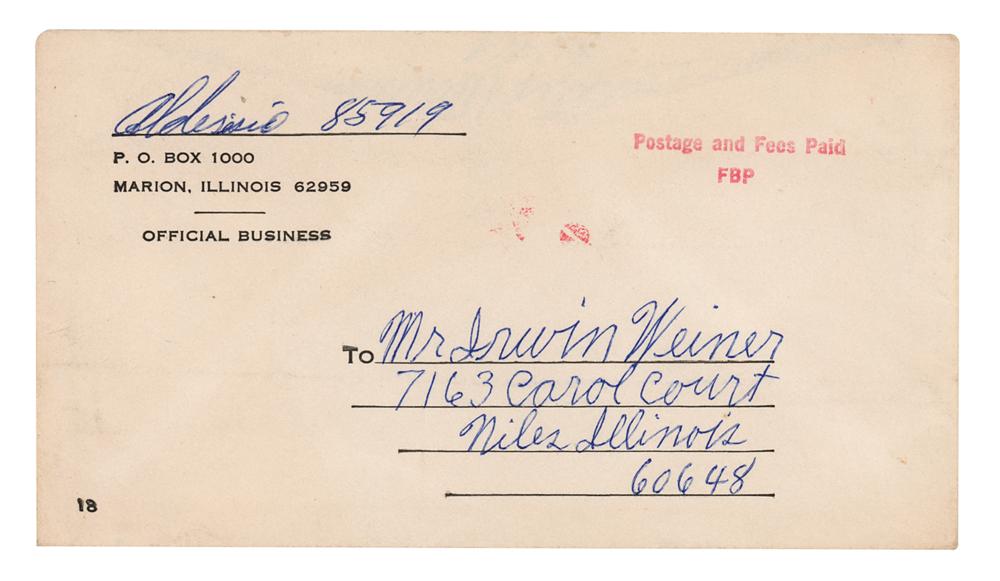 Alderisio 85919
P. O. BOX 1000
MARION, ILLINOIS 62959
OFFICIAL BUSINESS
Postage and Fees Paid
FBP
To Mr Irwin Weiner
7163 Carol Court
Niles Illinois
60648
18